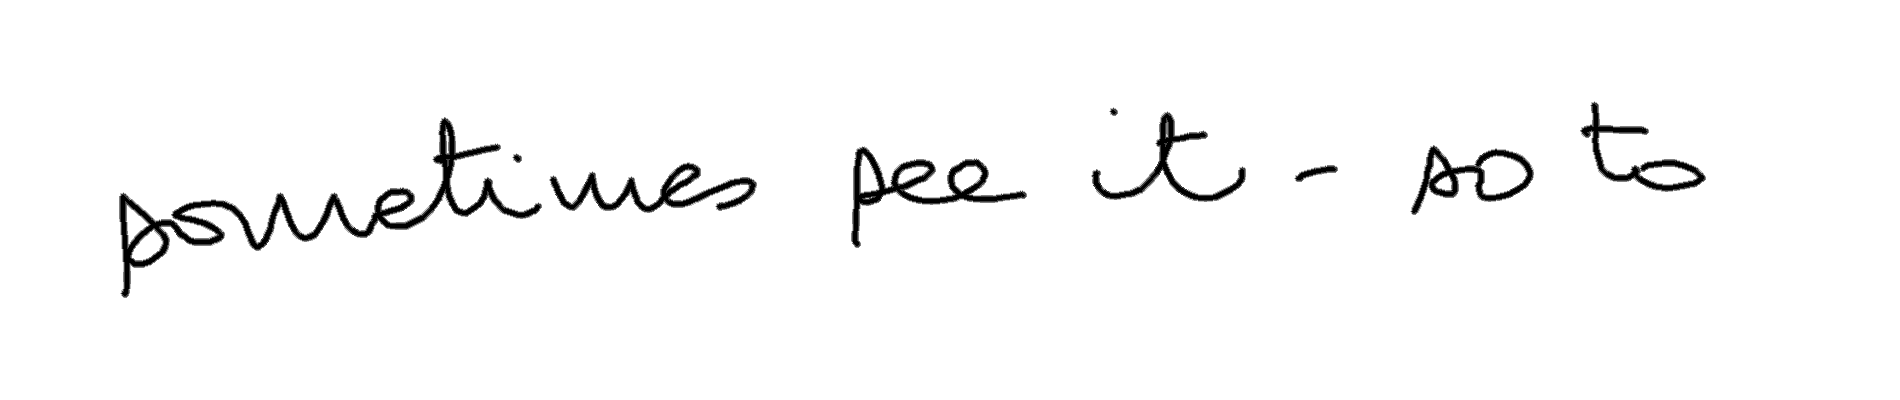 sometimes see it - so to